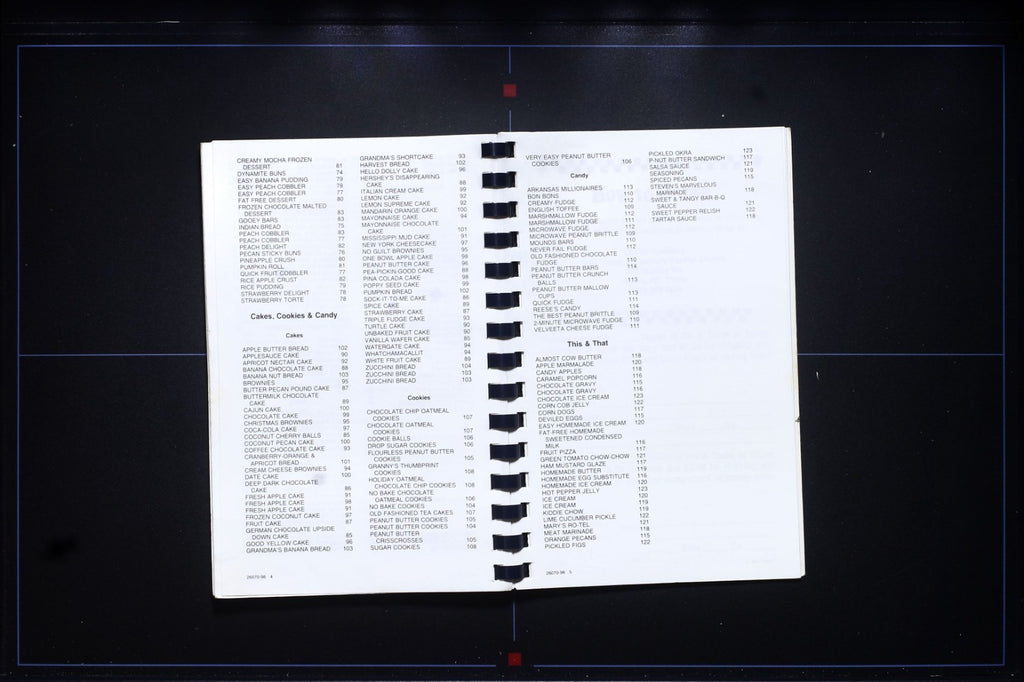 CREAMY MOCHA FROZEN
DESSERT 81
DYNAMITE BUNS 74
EASY BANANA PUDDING 79
EASY PEACH COBBLER 78
EASY PEACH COBBLER 77
FAT FREE DESSERT 80
FROZEN CHOCOLATE MALTED
DESSERT 83
GOOEY BARS 83
INDIAN BREAD 75
PEACH COBBLER 83
PEACH COBBLER 77
PEACH DELIGHT 82
PECAN STICKY BUNS 76
PINEAPPLE CRUSH 80
PUMPKIN ROLL 81
QUICK FRUIT COBBLER 77
RICE APPLE CRUST 82
RICE PUDDING 79
STRAWBERRY DELIGHT 78
STRAWBERRY TORTE 78
Cakes, Cookies & Candy
Cakes
APPLE BUTTER BREAD 102
APPLESAUCE CAKE 90
APRICOT NECTAR CAKE 92
BANANA CHOCOLATE CAKE 88
BANANA NUT BREAD 103
BROWNIES 95
BUTTER PECAN POUND CAKE 87
BUTTERMILK CHOCOLATE
CAKE 89
CAJUN CAKE 100
CHOCOLATE CAKE 99
CHRISTMAS BROWNIES 95
COCA-COLA CAKE 97
COCONUT CHERRY BALLS 85
COCONUT PECAN CAKE 100
COFFEE CHOCOLATE CAKE 93
CRANBERRY-ORANGE &
APRICOT BREAD 101
CREAM CHEESE BROWNIES 94
DATE CAKE 100
DEEP DARK CHOCOLATE
CAKE 86
FRESH APPLE CAKE 91
FRESH APPLE CAKE 98
FRESH APPLE CAKE 91
FROZEN COCONUT CAKE 97
FRUIT CAKE 87
GERMAN CHOCOLATE UPSIDE
DOWN CAKE 85
GOOD YELLOW CAKE 96
GRANDMA'S BANANA BREAD 103
26070-96 4
GRANDMA'S SHORTCAKE 93
HARVEST BREAD 102
HELLO DOLLY CAKE 96
HERSHEY'S DISAPPEARING
CAKE 88
ITALIAN CREAM CAKE 99
LEMON CAKE 92
LEMON SUPREME CAKE 92
MANDARIN ORANGE CAKE 100
MAYONNAISE CAKE 94
MAYONNAISE CHOCOLATE
CAKE 101
MISSISSIPPI MUD CAKE 91
NEW YORK CHEESECAKE 97
NO GUILT BROWNIES 95
ONE BOWL APPLE CAKE 98
PEANUT BUTTER CAKE 96
PEA-PICKIN-GOOD CAKE 88
PINA COLADA CAKE 98
POPPY SEED CAKE 99
PUMPKIN BREAD 102
SOCK-IT-TO-ME CAKE 86
SPICE CAKE 89
STRAWBERRY CAKE 87
TRIPLE FUDGE CAKE 93
TURTLE CAKE 90
UNBAKED FRUIT CAKE 90
VANILLA WAFER CAKE 85
WATERGATE CAKE 94
WHATCHAMACALLIT 94
WHITE FRUIT CAKE 89
ZUCCHINI BREAD 104
ZUCCHINI BREAD 103
ZUCCHINI BREAD 103
Cookies
CHOCOLATE CHIP OATMEAL
COOKIES 107
CHOCOLATE OATMEAL
COOKIES 107
COOKIE BALLS 106
DROP SUGAR COOKIES 106
FLOURLESS PEANUT BUTTER
COOKIES 105
GRANNY'S THUMBPRINT
COOKIES 108
HOLIDAY OATMEAL
CHOCOLATE CHIP COOKIES 108
NO BAKE CHOCOLATE
OATMEAL COOKIES 106
NO BAKE COOKIES 104
OLD FASHIONED TEA CAKES 107
PEANUT BUTTER COOKIES 105
PEANUT BUTTER COOKIES 104
PEANUT BUTTER
CRISSCROSSES 105
SUGAR COOKIES 108
VERY EASY PEANUT BUTTER
COOKIES 106
Candy
ARKANSAS MILLIONAIRES 113
BON BONS 110
CREAMY FUDGE 112
ENGLISH TOFFEE 109
MARSHMALLOW FUDGE 112
MARSHMALLOW FUDGE 111
MICROWAVE FUDGE 112
MICROWAVE PEANUT BRITTLE 109
MOUNDS BARS 110
NEVER FAIL FUDGE 112
OLD FASHIONED CHOCOLATE
FUDGE 110
PEANUT BUTTER BARS 114
PEANUT BUTTER CRUNCH
BALLS 113
PEANUT BUTTER MALLOW
CUPS 113
QUICK FUDGE 111
REESE'S CANDY 114
THE BEST PEANUT BRITTLE 109
2-MINUTE MICROWAVE FUDGE 110
VELVEETA CHEESE FUDGE 111
This & That
ALMOST COW BUTTER 118
APPLE MARMALADE 120
CANDY APPLES 118
CARAMEL POPCORN 116
CHOCOLATE GRAVY 115
CHOCOLATE GRAVY 116
CHOCOLATE ICE CREAM 123
CORN COB JELLY 122
CORN DOGS 117
DEVILED EGGS 115
EASY HOMEMADE ICE CREAM 120
FAT-FREE HOMEMADE
SWEETENED CONDENSED
MILK 116
FRUIT PIZZA 117
GREEN TOMATO CHOW-CHOW 121
HAM MUSTARD GLAZE 117
HOMEMADE BUTTER 119
HOMEMADE EGG SUBSTITUTE 116
HOMEMADE ICE CREAM 120
HOT PEPPER JELLY 123
ICE CREAM 120
ICE CREAM 119
KIDDIE CHOW 119
LIME CUCUMBER PICKLE 122
MARY'S RO-TEL 121
MEAT MARINADE 118
ORANGE PECANS 115
PICKLED FIGS 122
26070-96 5
PICKLED OKRA 123
P-NUT BUTTER SANDWICH 117
SALSA SAUCE 121
SEASONING 119
SPICED PECANS 115
STEVEN'S MARVELOUS
MARINADE 118
SWEET & TANGY BAR-B-Q
SAUCE 121
SWEET PEPPER RELISH 122
TARTAR SAUCE 119